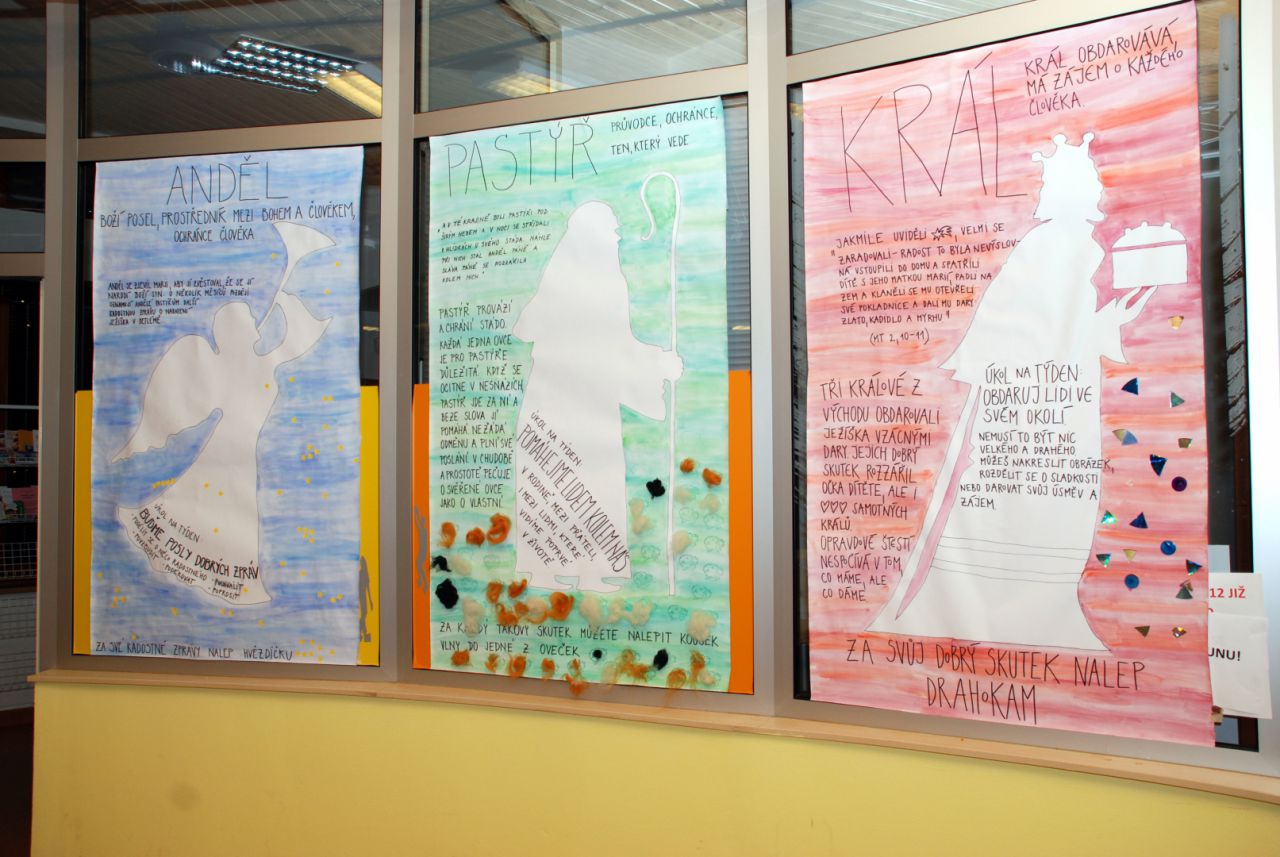 ANDĚL
BOŽÍ POSEL, PROSTŘEDNÍK MEZI BOHEM A ČLOVĚKEM,
OCHRÁNCE ČLOVĚKA
ANDĚL SE ZJEVIL MARII, ABY JÍ ZVĚSTOVAL, ŽE SE JÍ
NARODÍ BOŽÍ SYN. O NĚKOLIK MĚSÍCŮ POZDĚJI
OZNÁMILI ANDĚLÉ PASTÝŘŮM DALŠÍ
RADOSTNOU ZPRÁVU O NAROZENÍ
JEŽÍŠKA V BETLÉMĚ
ÚKOL NA TÝDEN
BUĎME POSLY DOBRÝCH ZPRÁV
RADOSTNÉHO - POCHVÁLIT
- PODĚKOVAT - POPROSIT
ZA SVÉ RADOSTNÉ ZPRÁVY NALEP HVĚZDIČKU
PASTÝŘ
PRŮVODCE, OCHRÁNCE,
TEN, KTERÝ VEDE
"A V TÉ KRAJINĚ BYLI PASTÝŘI POD
ŠIRÝM NEBEM A V NOCI SE STŘÍDALI
V HLÍDKÁCH U SVÉHO STÁDA. NÁHLE
PŘI NICH STÁL ANDĚL PÁNĚ A
SLÁVA PÁNĚ SE ROZZÁŘILA
KOLEM NICH."
PASTÝŘ PROVÁZÍ
A CHRÁNÍ STÁDO.
KAŽDÁ JEDNA OVCE
JE PRO PASTÝŘE
DŮLEŽITÁ. KDYŽ SE
OCITNE V NESNÁZÍCH
PASTÝŘ JDE ZA NÍ A
BEZE SLOVA JÍ
POMÁHÁ. NEŽÁDÁ
ODMĚNU A PLNÍ SVÉ
POSLÁNÍ V CHUDOBĚ
A PROSTOTĚ PEČUJE
O SVĚŘENÉ OVCE
JAKO O VLASTNÍ
ÚKOL NA TÝDEN:
POMÁHEJME LIDEM KOLEM NÁS
V RODINĚ, MEZI PŘÁTELI,
I MEZI LIDMI, KTERÉ
VIDÍME POPRVÉ
V ŽIVOTĚ
ZA KAŽDÝ TAKOVÝ SKUTEK MŮŽETE NALEPIT KOUSEK
VLNY DO JEDNÉ Z OVEČEK
KRÁL
KRÁL OBDAROVÁVÁ,
MÁ ZÁJEM O KAŽDÉHO
ČLOVĚKA.
JAKMILE UVIDĚLI , VELMI SE
"ZARADOVALI - RADOST TO BYLA NEVÝSLOV-
NÁ VSTOUPILI DO DOMU A SPATŘILI
DÍTĚ S JEHO MATKOU MARIÍ, PADLI NA
ZEM A KLANĚLI SE MU OTEVŘELI
SVÉ POKLADNICE A DALI MU DARY
ZLATO, KADIDLO A MYRHU"
(MT 2, 10-11)
TŘI KRÁLOVÉ Z
VÝCHODU OBDAROVALI
JEŽÍŠKA VZÁCNÝMI
DARY JEJICH DOBRÝ
SKUTEK ROZZÁŘIL
OČKA DÍTĚTE, ALE I
♡♡♡ SAMOTNÝCH
KRÁLŮ.
OPRAVDOVÉ ŠTĚSTÍ
NESPOČÍVÁ V TOM,
CO MÁME, ALE
CO DÁME.
ÚKOL NA TÝDEN:
OBDARUJ LIDI VE
SVÉM OKOLÍ.
NEMUSÍ TO BÝT NIC
VELKÉHO A DRAHÉHO
MŮŽEŠ NAKRESLIT OBRÁZEK,
ROZDĚLIT SE O SLADKOSTI
NEBO DAROVAT SVŮJ ÚSMĚV A
ZÁJEM.
ZA SVŮJ DOBRÝ SKUTEK NALEP
DRAHOKAM
12 JIŽ
UNU!